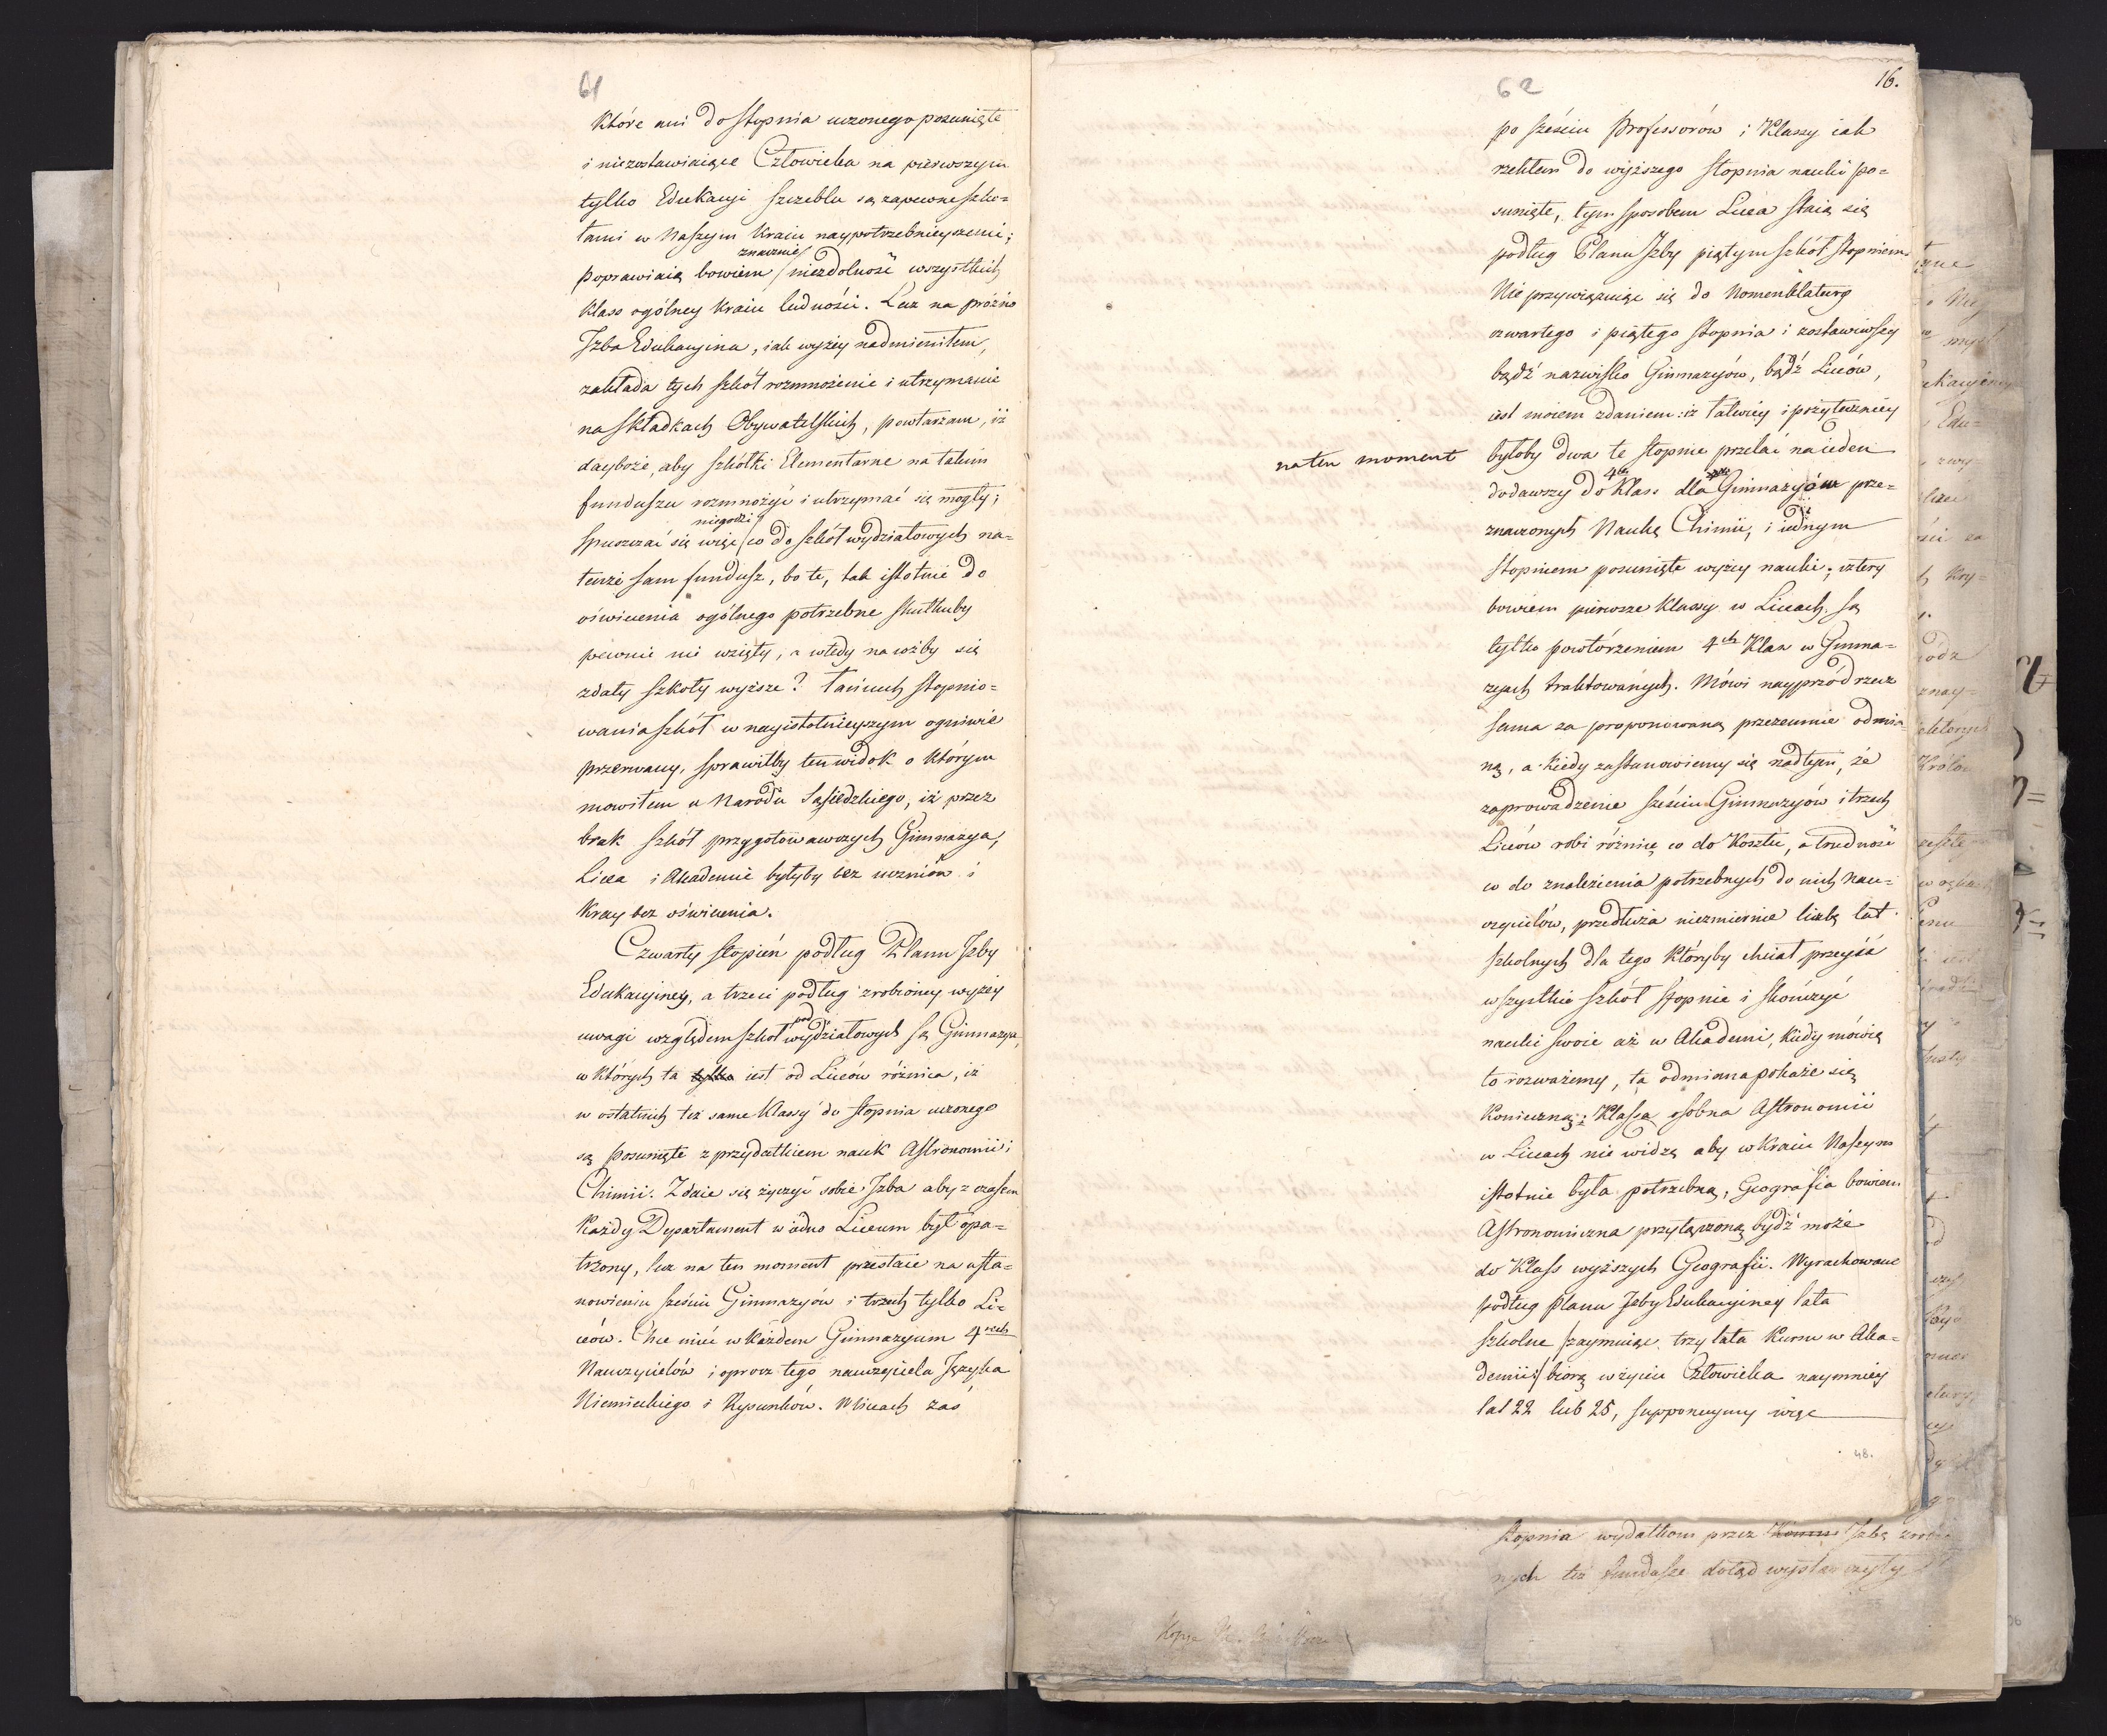 61
które ani do stopnia uczonego posunięte
i niezostawiaiące Człowieka na pierwszym
tylko Edukacyi szczeblu są zapewne szko-
łami w Naszym Kraiu naypotrzebnieyszemi;
znacznie
poprawiaią bowiem / niezdolność wszystkich
klass ogólney kraiu ludności. Lecz na próżno
Izba Edukacyina, iak wyżey nadmieniłem,
zakłada tych szkół rozmnożenie i utrzymanie
na składkach Obywatelskich, powtarzam, iż
dayboże, aby szkółki Elementarne na takim
funduszu rozmnożyć i utrzymać się mogły;
niegodzi
spuszczać się więc / co do szkół wydziałowych na-
tenże sam fundusz, bo te, tak istotnie do
oświecenia ogólnego potrzebne skutkuby
pewnie nie wzięły, a wtedy nacóżby się
zdały szkoły wyższe? Łańcuch stopnio-
wania szkół w nayistotnieyszym ogniwie
przerwany, sprawiłby ten widok o którym
mówiłem u Narodu Sąsiedzkiego, iż przez
brak szkół przygotowawczych Gimnazya,
Licea i Akademie byłyby bez uczniów i
kray bez oświecenia.
Czwarty stopień podług Planu Izby
Edukacyiney, a trzeci podług zrobioney wyżey
pod
uwagi względem szkół wydziałowych są Gimnazya,
w których ta tylko iest od Liceów różnica, iż
w ostatnich też same Klassy do stopnia uczonego
są posunięte z przydatkiem nauk Astronomii i
Chimii. Zdaie się życzyć sobie Izba aby z czasem
każdy Departament w iedno Liceum był opa-
trzony, lecz na ten moment przestaie na usta-
nowieniu sześciu Gimnazyów i trzech tylko Li-
ceów. Chce mieć w każdem Gimnazyum 4rech
Nauczycielów i oprócz tego nauczyciela Języka
Niemieckiego i Rysunków. W Liceach zaś
62
16.
po sześciu Professorów i Klassy iak
rzekłem do wyższego stopnia nauki po-
sunięte, tym sposobem Licea staią się
podług Planu Izby piątym szkół stopniem.
Nie przywiązuiąc się do Nomenklatury
czwartego i piątego stopnia i zostawiwszy
bądź nazwisko Gimnazyów, bądź Liceów,
iest moiem zdaniem: iż łatwiey i pożyteczniey
na ten moment
byłoby dwa te stopnie przelać na ieden
4ch
dodawszy do Klass dla Gimnazyów prze-
znaczonych Naukę Chimii, i iednym
stopniem posunięte wyżey nauki; cztery
bowiem pierwsze klassy w Liceach są
tylko powtórzeniem 4ch Klass w Gimna-
zyach traktowanych. Mówi nayprzód rzecz
sama za proponowaną przezemnie odmia-
ną, a kiedy zastanowiemy się nad tym, że
zaprowadzenie sześciu Gimnazyów i trzech
Liceów robi różnicę co do kosztu, a trudność
co do znalezienia potrzebnych do nich nau-
czycielów, przedłuża niezmiernie liczbę lat
szkolnych dla tego któryby chciał przeyść
wszystkie szkół stopnie i skończyć
nauki swoie aż w Akademi, kiedy mówię
to rozważemy, ta odmiana pokaże się
konieczną: Klassa osobna Astronomii
w Liceach nie widzę aby w Kraiu Naszym
istotnie była potrzebną, Geografia bowiem
Astronomiczna przyłączoną bydź może
do Klass wyższych Geografii. Wyrachowane
podług planu Izby Edukacyiney lata
szkolne / zaymuiąc trzy lata kursu w Aka-
demii / biorą w życiu Człowieka naymniey
lat 22 lub 25, supponuymy więc
48.
stopnia wydatkom przez Izbę
nych też fundusze dotąd wystarczyły